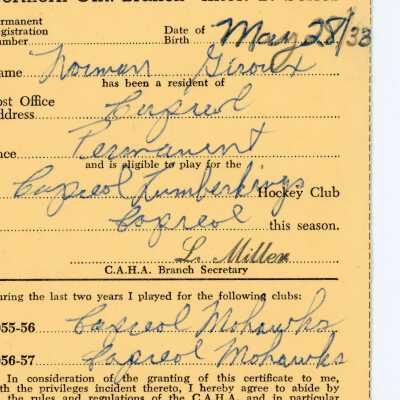 Branch
ermanent
egistration
umber
Date of
Birth May 28/33
ame Norman Giroux
has been a resident of
ost Office
ddress Capreol
nce Permanint
and is eligible to play for the
Capreol Lumberkings Hockey Club
Capreol this season.
L. Miller
C.A.H.A. Branch Secretary
uring the last two years I played for the following clubs:
955-56 Capreol Mohawks
956-57 Capreol Mohawks
In consideration of the granting of this certificate to me,
ith the privileges incident thereto, I hereby agree to abide by
the rules and regulations of the C.A.H.A. and in particular